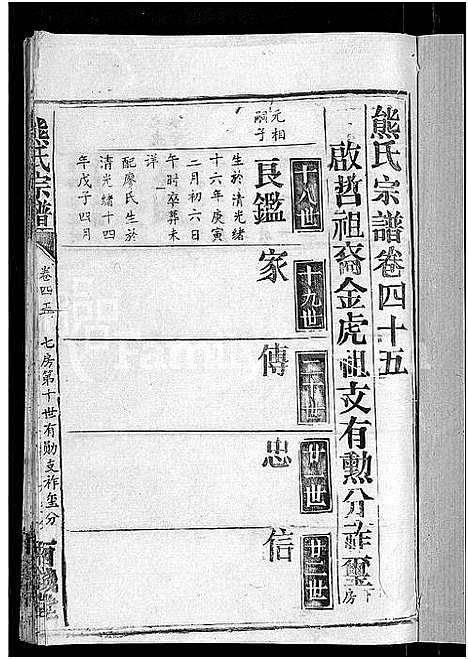 熊氏宗譜卷四十五
啟哲祖裔金虎祖支有勲分祚璽房下
十八世
十九世
二十世
廿一世
廿二世
元相嗣子
良鑑
家
傳
忠
信
生於清光緒
十六年庚寅
二月初六日
午時卒葬未
詳
配廖氏生於
清光緒十四
年戊子四月
熊氏宗譜
卷四五
七房第十世有勛支祚璽分